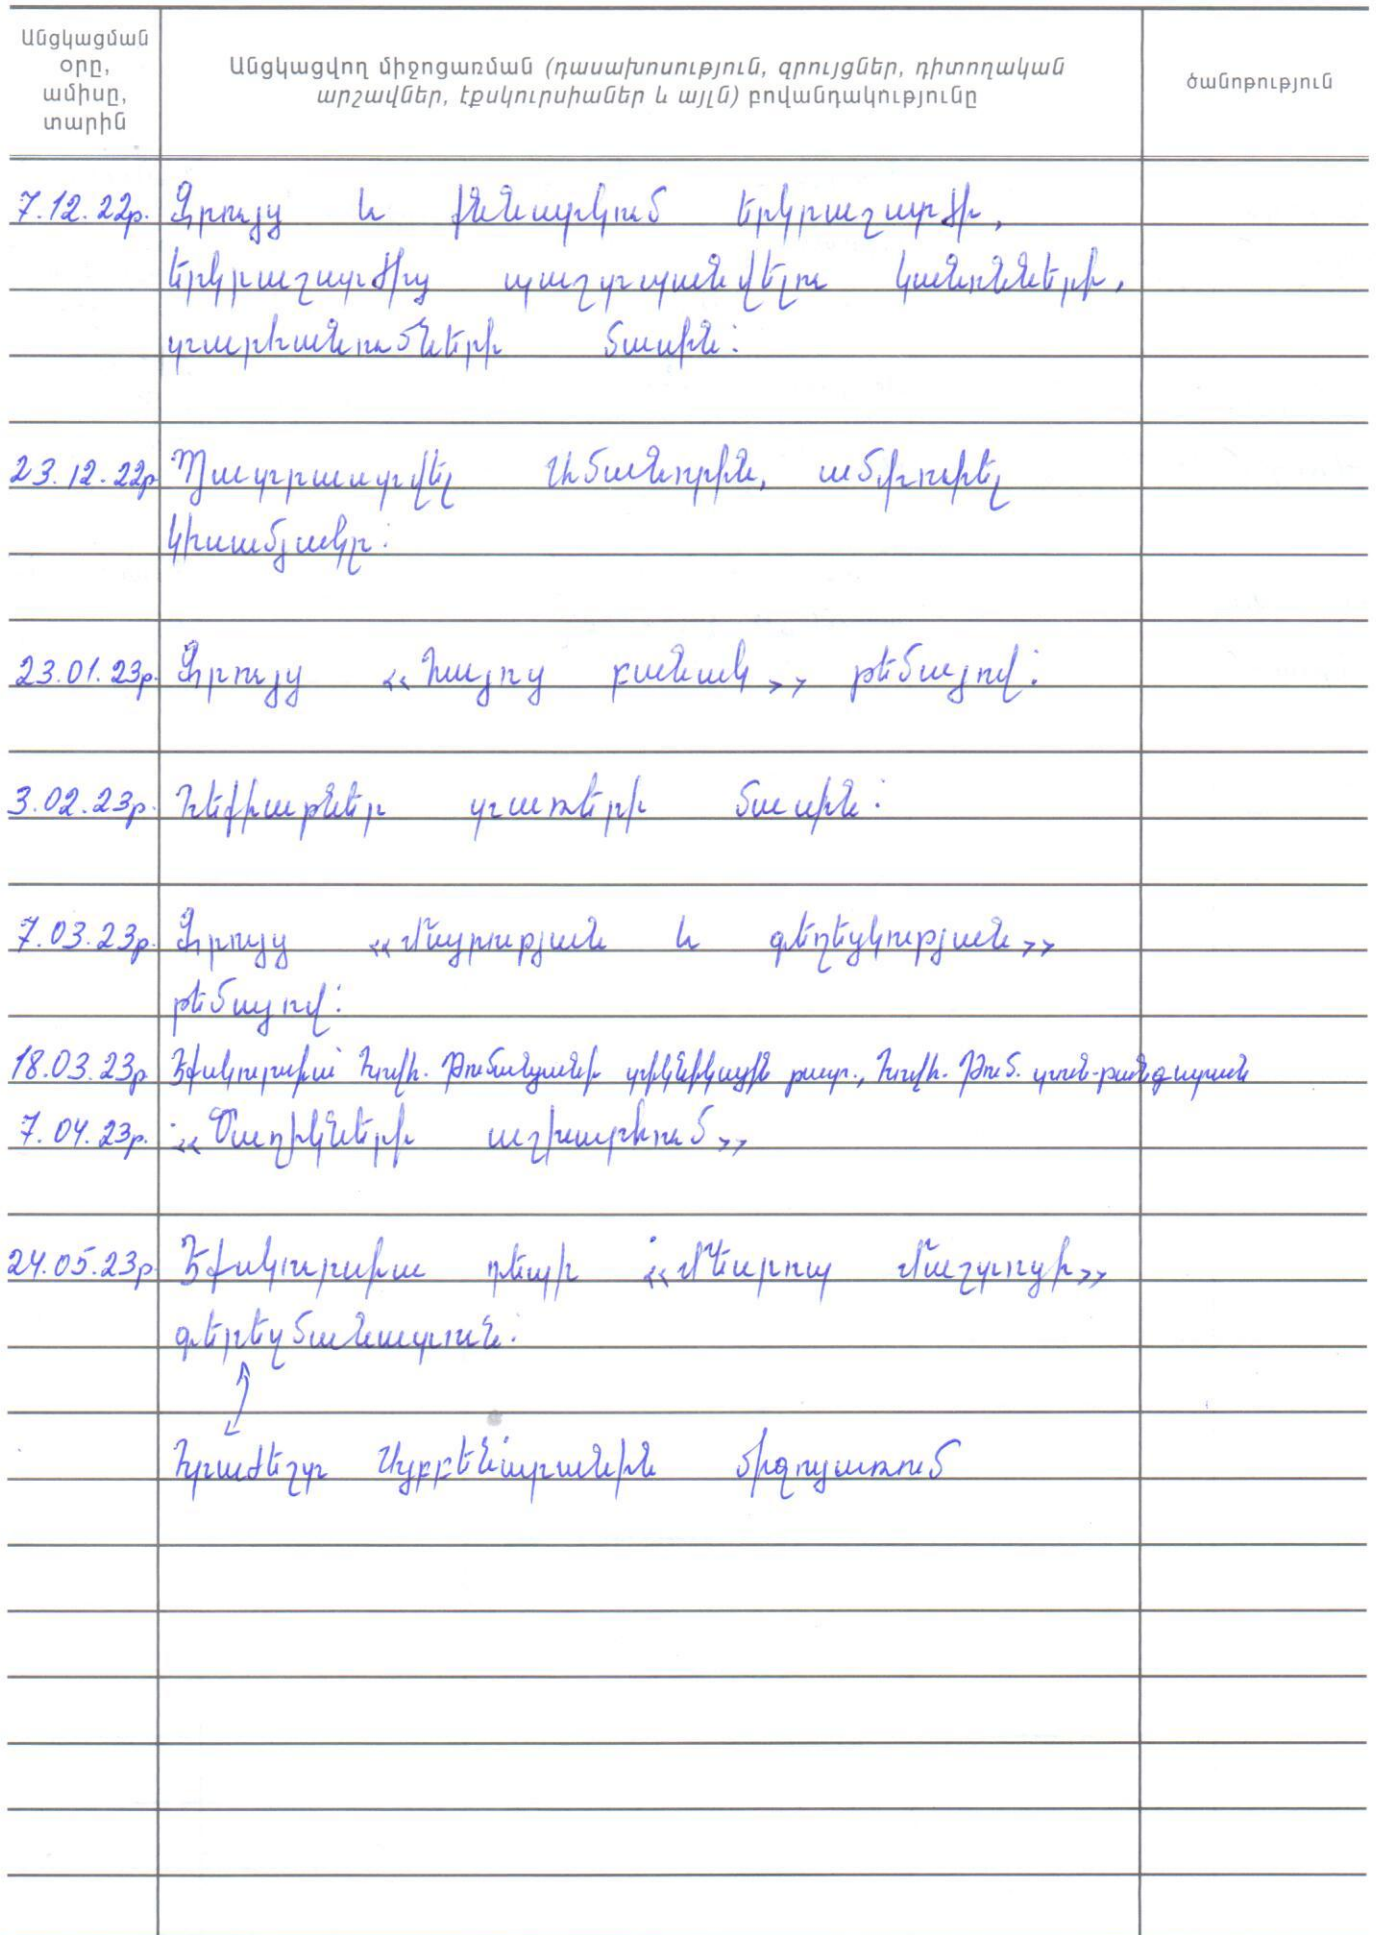 Անցկացման
օրը,
ամիսը,
տարին
Անցկացվող միջոցառման (դասախոսություն, զրույցներ, դիտողական
արշավներ, էքսկուրսիաներ և այլն) բովանդակությունը
Ծանոթություն
7.12.22թ. Զրույց և քննարկում երկրաշարժի,
երկրաշարժից պաշտպանվելու կանոնների,
տարհանումների մասին:
23.12.22թ Պատրաստվել Ամանորին, ամփոփել
կիսամյակը:
23.01.23թ. Զրույց «Հայոց բանակ» թեմայով:
3.02.23թ. Հեքիաթներ տառերի մասին:
7.03.23թ. Զրույց «Մայրության և գեղեցկության»
թեմայով:
18.03.23թ Էքսկուրսիա Հովհ. Թումանյանի տիկնիկային թատր., Հովհ. Թում. տուն-թանգարան
7.04.23թ. «Ծաղիկների աշխարհում»
24.05.23թ Էքսկուրսիա դեպի «Մեսրոպ Մաշտոցի»
գերեզմանատուն:
Հրաժեշտ Այբբենարանին միջոցառում